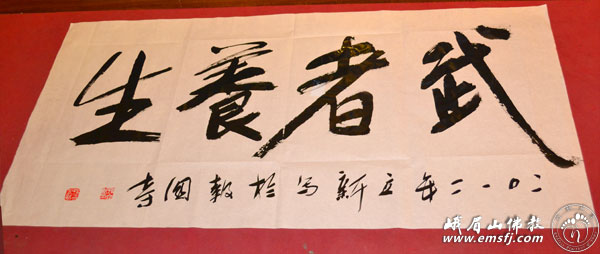 武者養生
二〇一二年立新写於報国寺
峨眉山佛教
www.emsfj.com